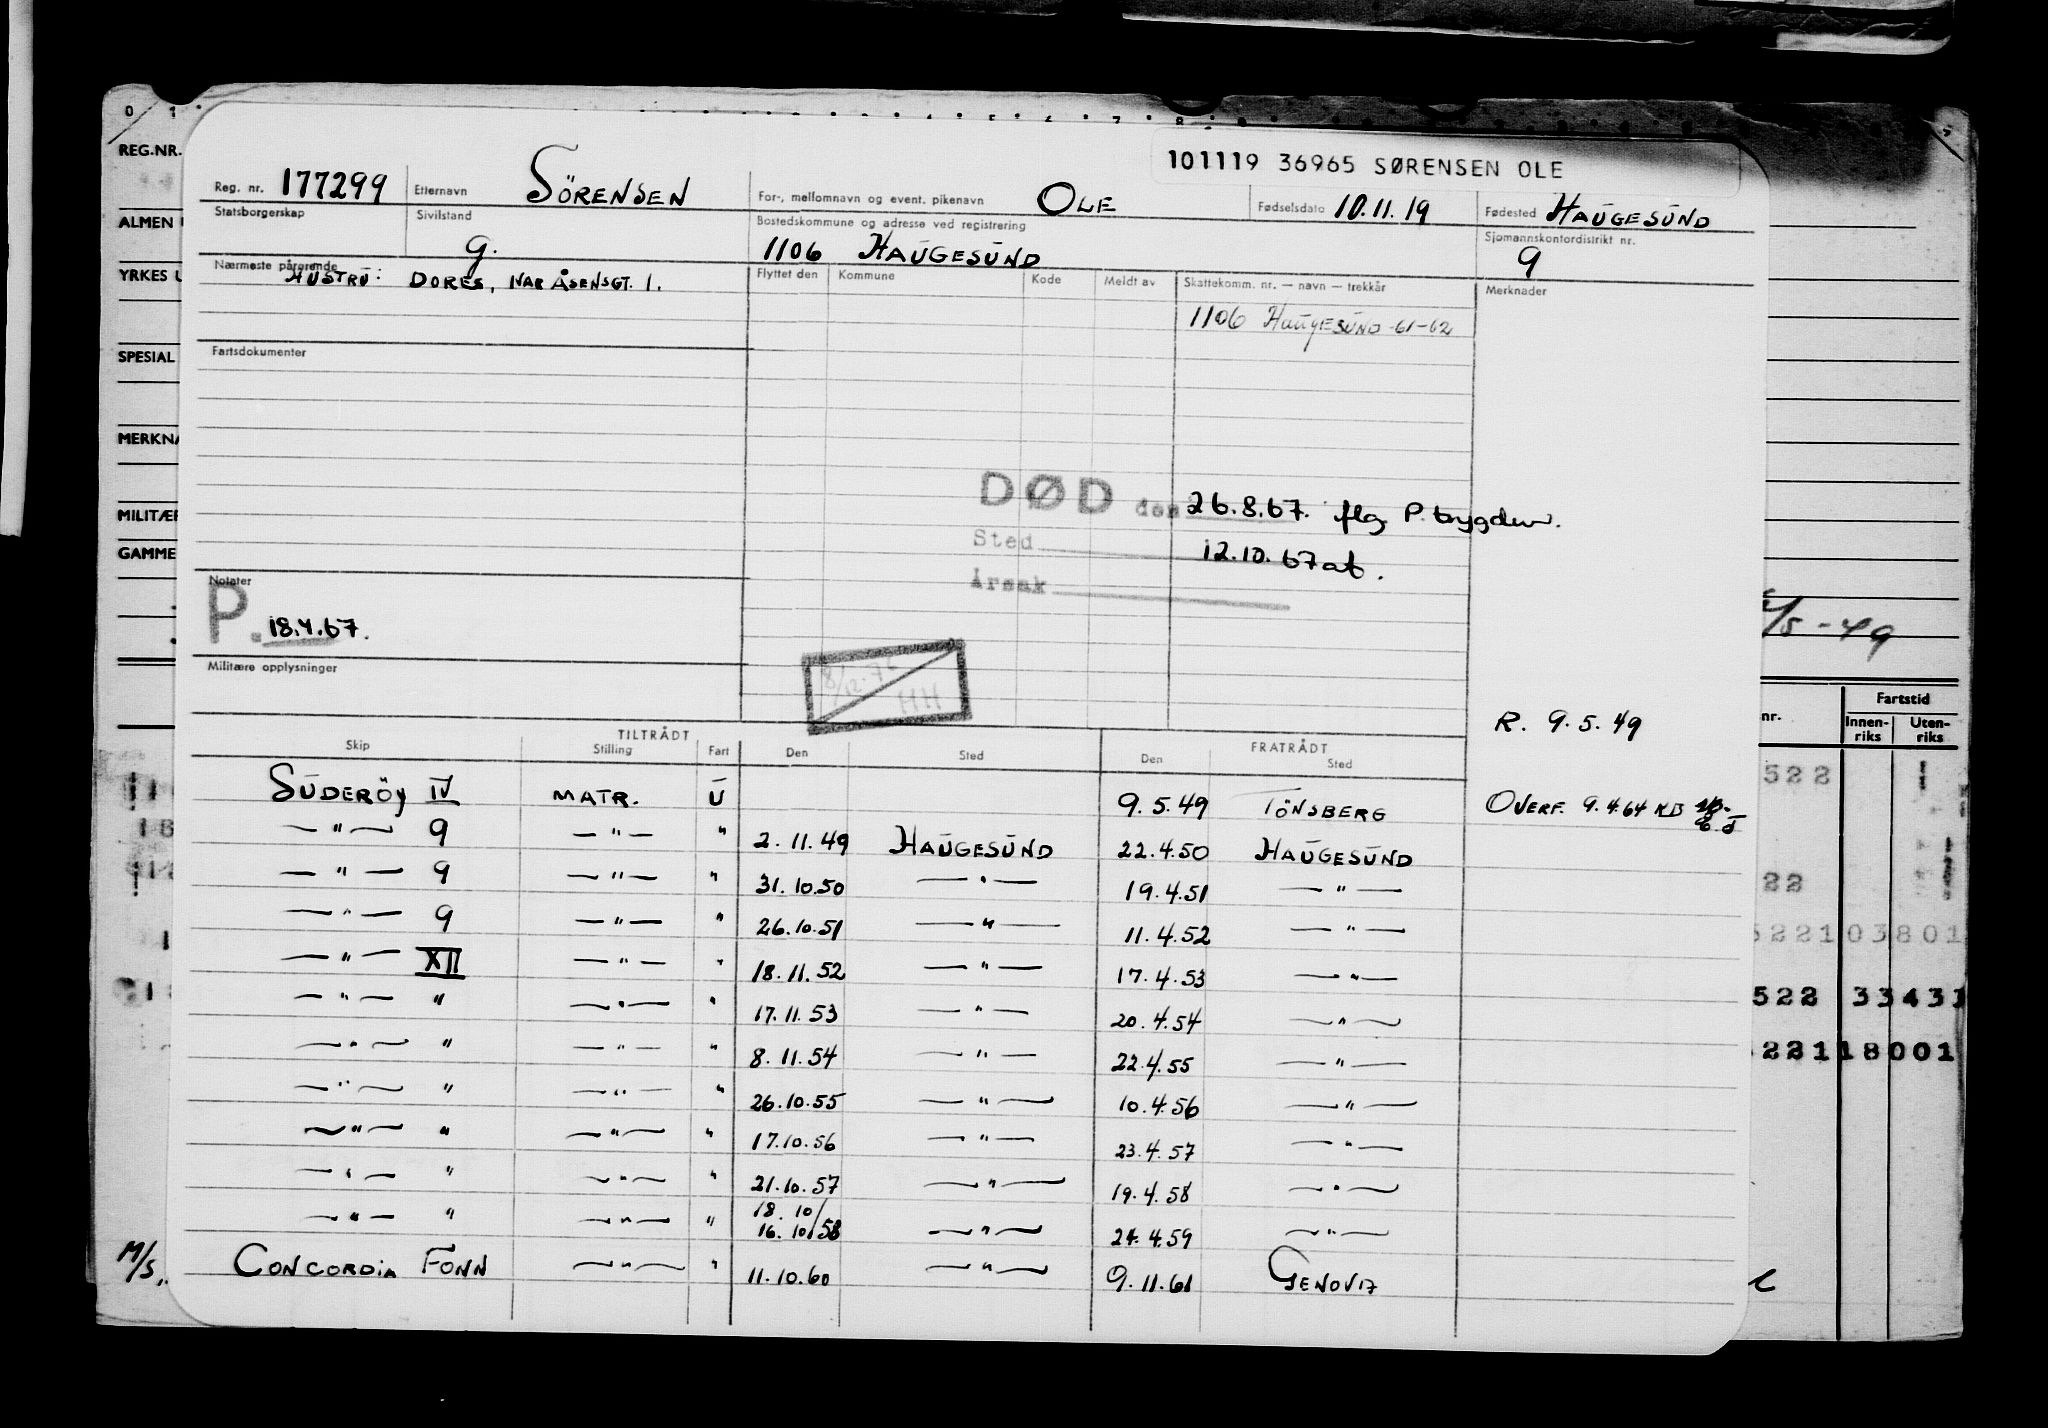 0 1
4 5 6 7 8 9
101119 36965 SØRENSEN OLE
REG.NR.
Reg. nr. 177299 Etternavn SÖRENSEN For-, mellomnavn og event. pikenavn OLE Fødselsdato 10.11.19 Fødested HAUGESUND
ALMEN
Statsborgerskap Sivilstand g. Bostedskommune og adresse ved registrering 1106 HAUGESUND Sjømannskontordistrikt nr. 9
YRKES U
Nærmeste pårørende HUSTRU: DORES, IVAR ÅSENSGT. 1.
Flyttet den Kommune Kode Meldt av Skattekomm. nr. — navn — trekkår Merknader
1106 HAUGESUND -61-62
SPESIAL
Fartsdokumenter
MERKNA
DØD den 26.8.67. flg. P. trygden.
MILITÆR
Sted 12.10.67 at.
GAMME
Årsak
Notater
P. 18.4.67.
/5-49
Militære opplysninger
8/12.76 HH
R. 9.5.49
nr. Fartstid
Innen-riks Uten-riks
TILTRÅDT FRATRÅDT
Skip Stilling Fart Den Sted Den Sted
SUDERÖY IV MATR. U 9.5.49 TÖNSBERG OVERF. 9.4.64 KB
522 1
—"— 9 —"— " 2.11.49 HAUGESUND 22.4.50 HAUGESUND
—"— 9 —"— " 31.10.50 —"— 19.4.51 —"—
22
—"— 9 —"— " 26.10.51 —"— 11.4.52 —"—
5221 03801
—"— XII —"— " 18.11.52 —"— 17.4.53 —"—
522 33431
—"— " —"— " 17.11.53 —"— 20.4.54 —"—
—"— " —"— " 8.11.54 —"— 22.4.55 —"—
221 18001
—"— " —"— " 26.10.55 —"— 10.4.56 —"—
—"— " —"— " 17.10.56 —"— 23.4.57 —"—
—"— " —"— " 21.10.57 —"— 19.4.58 —"—
—"— " —"— " 18.10/16.10/58 —"— 24.4.59 —"—
M/S.. CONCORDIA FONN —"— " 11.10.60 —"— 9.11.61 GENOVA